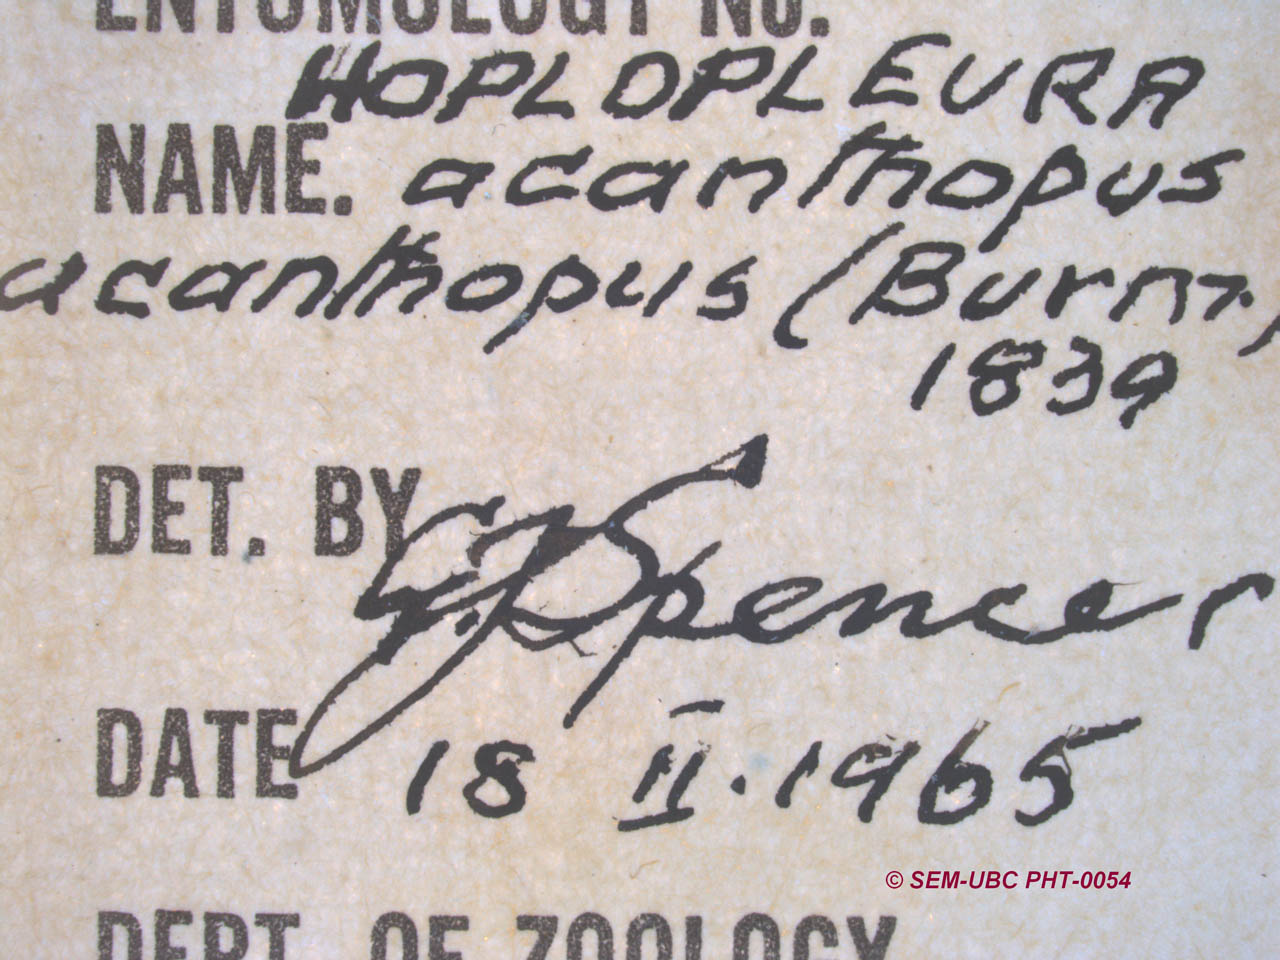 ENTOMOLOGY NO.
HOPLOPLEURA
NAME. acanthopus
acanthopus (Burm.)
1839
DET. BY G. J. Spencer
DATE 18 II. 1965
© SEM-UBC PHT-0054
DEPT. OF ZOOLOGY